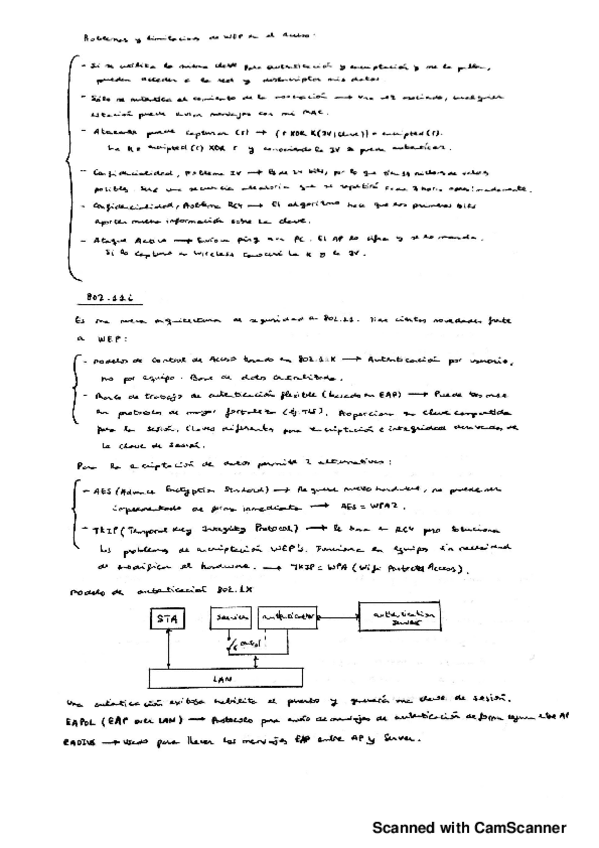 Problemas y limitaciones de WEP en el acceso:
- Si se utiliza la misma clave para autenticación y encriptación y me la pillan,
pueden acceder a la red y desencriptar mis datos
- Sólo se autentica al comienzo de la asociación → Una vez asociado, cualquier
estación puede enviar mensajes con mi MAC.
- Atacante puede capturar (r) → (r XOR K(IV|clave)) = encripted(r).
La K = encripted(r) XOR r y conociendo la IV se puede autenticar.
- Confidencialidad, Problema IV → Es de 24 bits, por lo que tiene millones de valores
posibles. Una secuencia aleatoria que se repetirá aproximadamente.
- Confidencialidad, Problema RC4 → El algoritmo hace que los primeros bits
aporten mucha información sobre la clave.
- Ataque Activo → Envío un ping a un PC. El AP lo cifra y se lo manda.
Si lo capturo en Wireless conoceré la K y la IV.
802.11i
Es una nueva arquitectura de seguridad en 802.11. Tiene ciertas novedades frente
a WEP:
- Modelos de Control de Acceso basado en 802.1X → Autenticación por usuario,
no por equipo. Base de datos centralizada.
- Marco de trabajo de autenticación flexible (basado en EAP) → Puede basarse
en protocolos de mayor fortaleza (ej TLS). Proporciona una clave compartida
para la sesión. Claves diferentes para encriptación e integridad derivadas de
la clave de sesión.
Para la encriptación de datos permite 2 alternativas:
- AES (Advance Encryption Standard) → Requiere nuevo hardware, no puede ser
implementado de forma inmediata → AES = WPA2.
- TKIP (Temporal Key Integrity Protocol) → Se basa en RC4 pero soluciona
los problemas de encriptación WEP's. Funciona en equipos sin necesidad
de modificar el hardware. → TKIP = WPA (Wifi Protected Access).
Modelo de autenticación 802.1X
STA
service
authenticator
authentication
server
control
LAN
Una autenticación exitosa habilita el puerto y genera una clave de sesión.
EAPOL (EAP over LAN) → Protocolo para envío de mensajes de autenticación de forma segura entre AP
RADIUS → Usado para llevar los mensajes EAP entre AP y Server.
Scanned with CamScanner